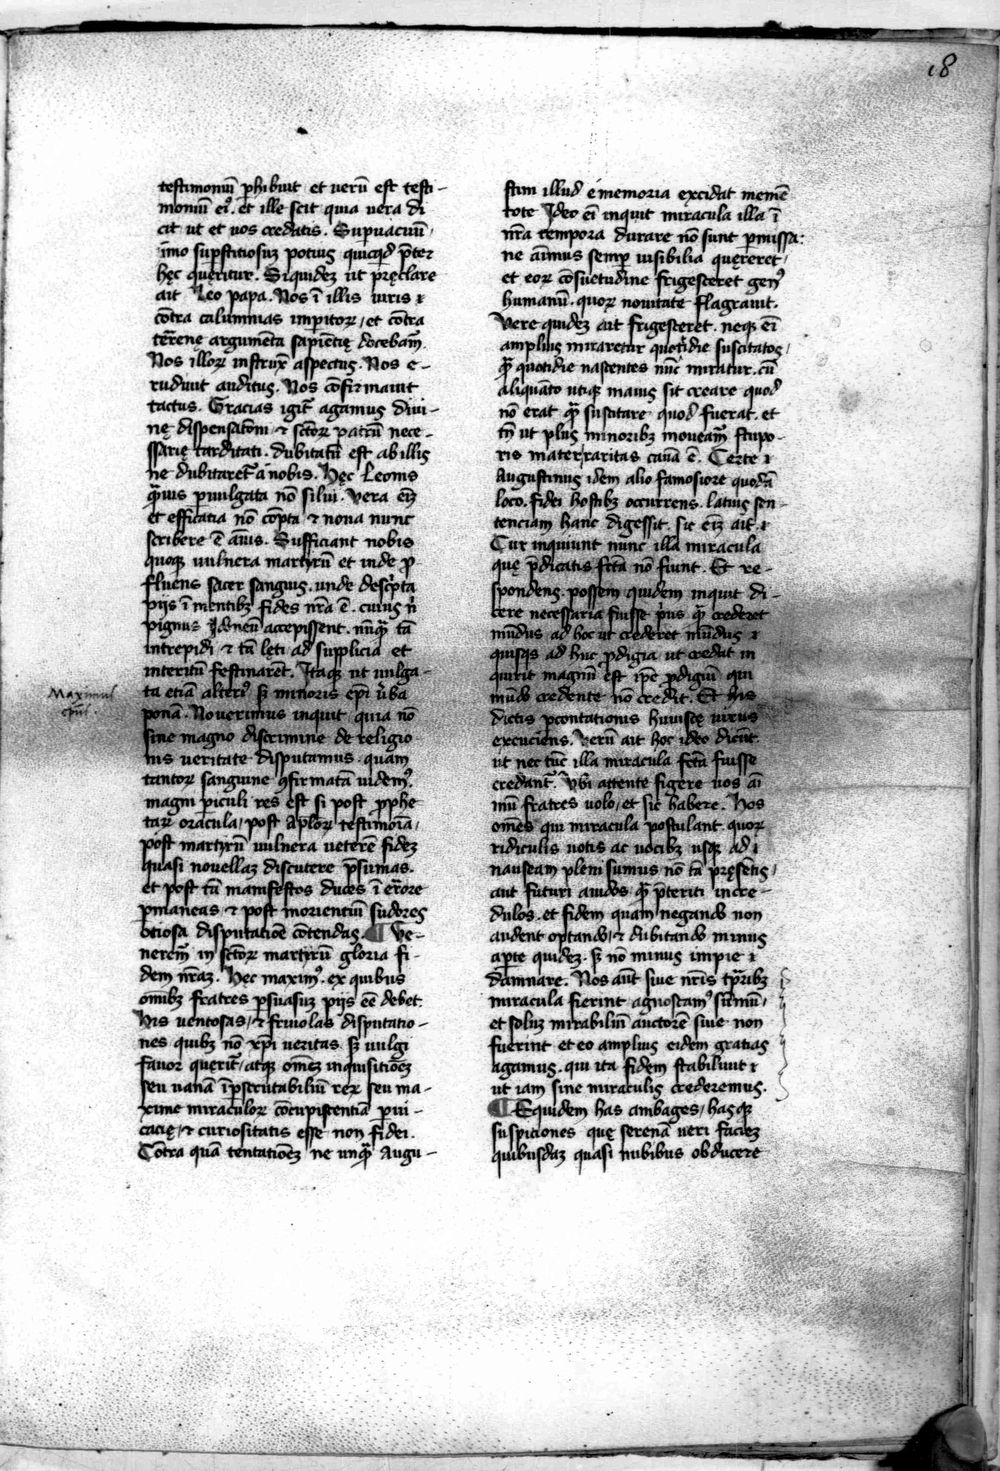 18
testimoniū phibuit et verū est testi-
moniū ei9. et ille scit quia vera di
cit ut et uos credatis. Supuacuū
imo supstitiosuz potius quicqid p̄ter
hęc quęritur. Siquidez ut pręclare
ait Leo papa. Nos ī illis uiris ⁊
cōtra calumnias impitoꝝ, et cōtra
terrenę argumēta sapiētię docebam̄.
Nos illoꝝ instrux̄ aspectus. Nos e-
rudiuit auditus. Nos cōfirmauit
tactus. Gracias igit̄ agamus diui-
nę dispensatōni ⁊ sctōꝝ patrū nece-
ssarię tarditati. dubitatū est ab illis
ne dubitaret̄ a nobis. Hęc Leonis
q̄uis puulgata nō silui. Vera eiz
et efficatia nō cōpta ⁊ noua nunc
scribere ē aīus. Sufficiant nobis
quoqꝫ uulnera martyrū et inde p
fluens sacer sanguis. unde descpta
piis ī mentibꝫ fides nr̄a ē. cuius n̄
pignus idoneū accepissent. nūq̄ tā
intrepidi ⁊ tā leti ad supplicia et
interitū festinarēt. Itaqꝫ ut uulga-
Maximus
ep̄us.
ta etiā alteri9 sꝫ minoris epī uba
ponā. Nouerimus inquit quia nō
sine magno discrimine de religio
nis veritate disputamus. quam
tantoꝝ sanguine 9firmatā uidem9.
magni piculi res est si post pphe
taꝝ oracula, post aploꝝ testimōia,
post martyrū uulnera veterē fidez
quasi nouellaz discutere p̄sumas.
et post tā manifestos duces ī errore
pmaneas ⁊ post morientiū sudores
otiosa disputatiōe cōtendas. ¶ Ve-
nerem̄ in sctōꝝ martyrū gloria fi-
dem nr̄az. Hęc maxim9. ex quibus
omībꝫ fratres psuasuz piis eē debet.
His uentosas, ⁊ friuolas disputatio-
nes quibꝫ nō xpi veritas sꝫ uulgi
fauor quęrit̄, atqꝫ omēs inquisitiōes
seu uanā īpscrutabiliū reꝝ seu ma-
xime miraculoꝝ cōcupiscentiā pui-
cacię, ⁊ curiositatis esse non fidei.
Cōtra quā tentatiōez ne unq̄ Augu-
stini illud e memoria excidat memē
tote Ideo eī inquit miracula illa ī
nr̄a tempora durare nō sunt pmissa:
ne aīmus semp uisibilia quęreret,
et eoꝝ cōsuetudine frigesceret gen9
humanū. quoꝝ nouitate flagrauit.
Vere quidez ait frigesceret. neqꝫ eī
amplius miraretur quotidie suscitatos,
q̄ quotidie nascentes nūc miratur. cū
aliquāto utiqꝫ maius sit creare quod
nō erat q̄ suscitare quod fuerat. et
tn̄ ut plus minoribꝫ moueam̄ stupo-
ris mater raritas causa ē. Certe ⁊
Augustinus idem alio famosiore quodā
loco. fidei hostibꝫ occurrens. latius sen-
tenciam hanc digessit. sic eiz ait. ⁊
Cur inquiunt nunc illa miracula
quę p̄dicatis fctā nō fiunt. Et re-
spondens. possem quidem inquit di-
cere necessaria fuisse pus q̄ crederet
mūdus ad hoc ut crederet mūdus ⁊
quisqs ad huc pdigia ut credat in
quirit magnū est ipe pdigiū qui
mūdo credente nō credit. Et his
dictis pcontationis huiuscę uirus
excuciens. Verū ait hoc ideo dicūt.
ut nec tūc illa miracula fctā fuisse
credant̄. Vbi attente figere uos aī
mū fratres uolo, et sic habere. Hos
omēs qui miracula postulant. quoꝝ
ridiculis uotis ac uocibꝫ usqꝫ ad ⁊
nauseam pleni sumus nō tā pręsētis,
aut futuri auidos q̄ pteriti incre-
dulos. et fidem quam negando non
audent optando, ⁊ dubitando minus
apte quidez. sꝫ nō minus impie ⁊
dānare. Nos aūt siue nr̄is tp̄ribꝫ
miracula fierint agnoscam9 sūmū,
et soluz mirabiliū auctorē siue non
fuerint et eo amplius eidem gratias
agamus. qui ita fidem stabiliuit ⁊
ut iam sine miraculis crederemus.
¶ Equidem has ambages, hasqꝫ
suspiciones quę serenā ueri faciez
quibusdaz quasi nubibus obducere